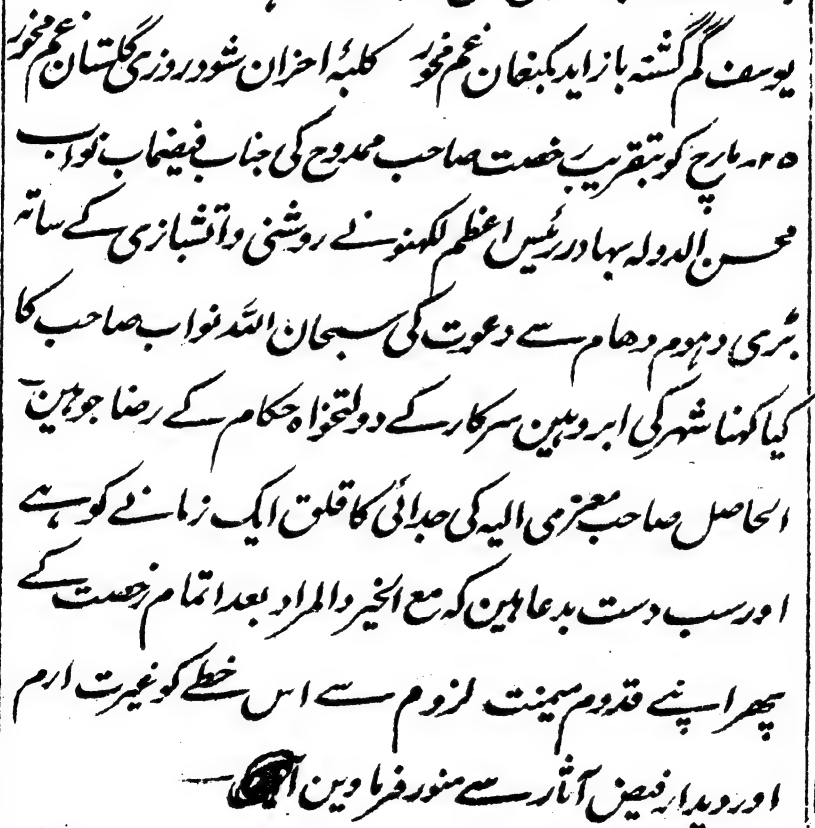 یوسف گم گشتہ باز اید بکنعان غم مخور کلبۂ احزان شود روزی گلستان غم مخور
۲۵۔ مارچ کو بتقریب رخصت صاحب ممدوح کی جناب فیضماب نواب
محسن الدولہ بہادر رئیس اعظم لکہنو نے روشنی و اتشبازی کے ساتہ
بڑی دہوم دھام سے دعوت کی سبحان اللہ نواب صاحب کا
کیا کہنا شہر کی ابرو ہین سرکار کے دولتخواہ حکام کے رضا جو ہین
الحاصل صاحب معزی الیہ کی جدائی کا قلق ایک زمانے کو ہے
اور سب دست بدعا ہین کہ مع الخیر والمراد بعد اتمام رخصت کے
پھر اپنے قدوم میمنت لزوم سے اس خطے کو غیرت ارم
اور دیدار فیض آثار سے منور فرماوین